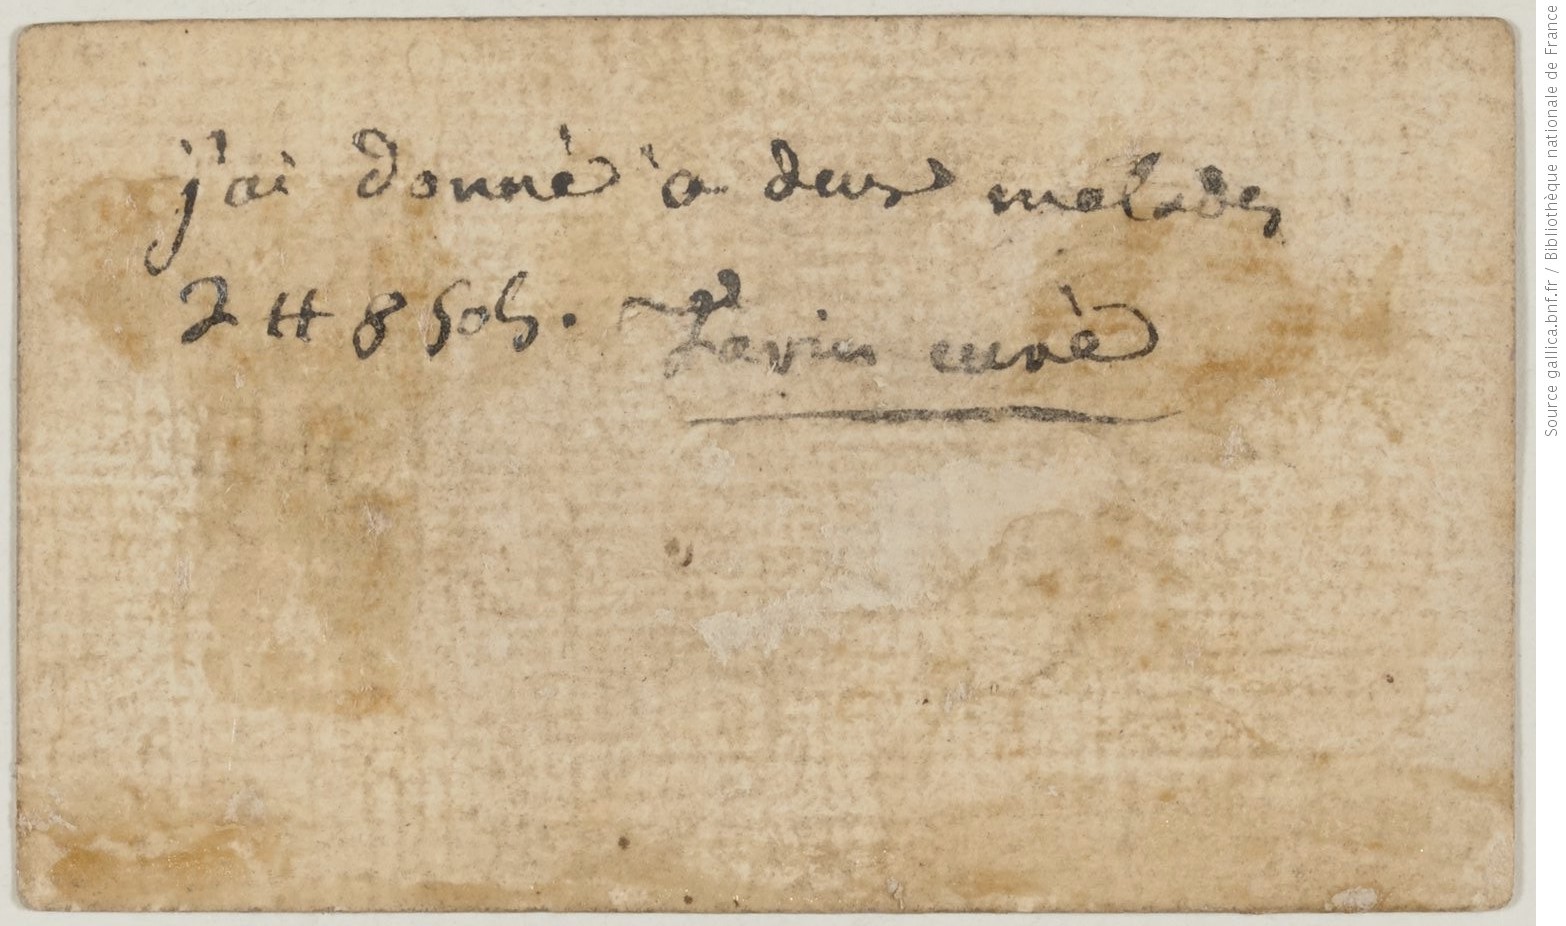 j'ai donné à deux malades
2 ₶ 8 sols. Tavin curé
Source gallica.bnf.fr / Bibliothèque nationale de France